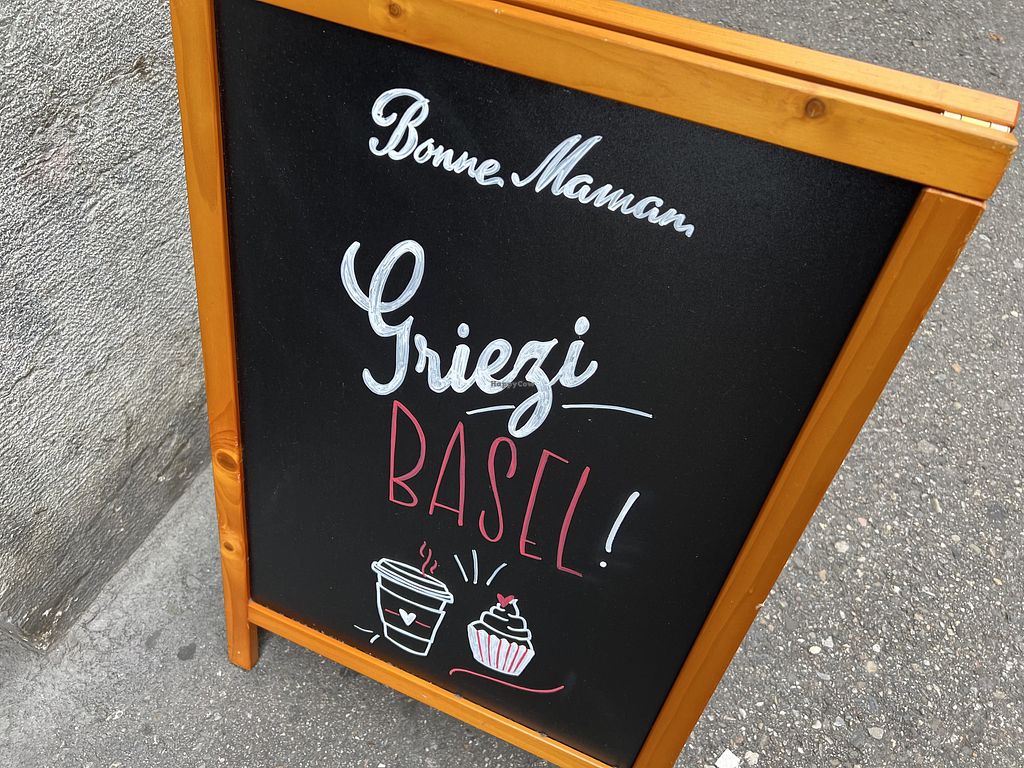 Bonne Maman
Griezi
BASEL!
HappyCow